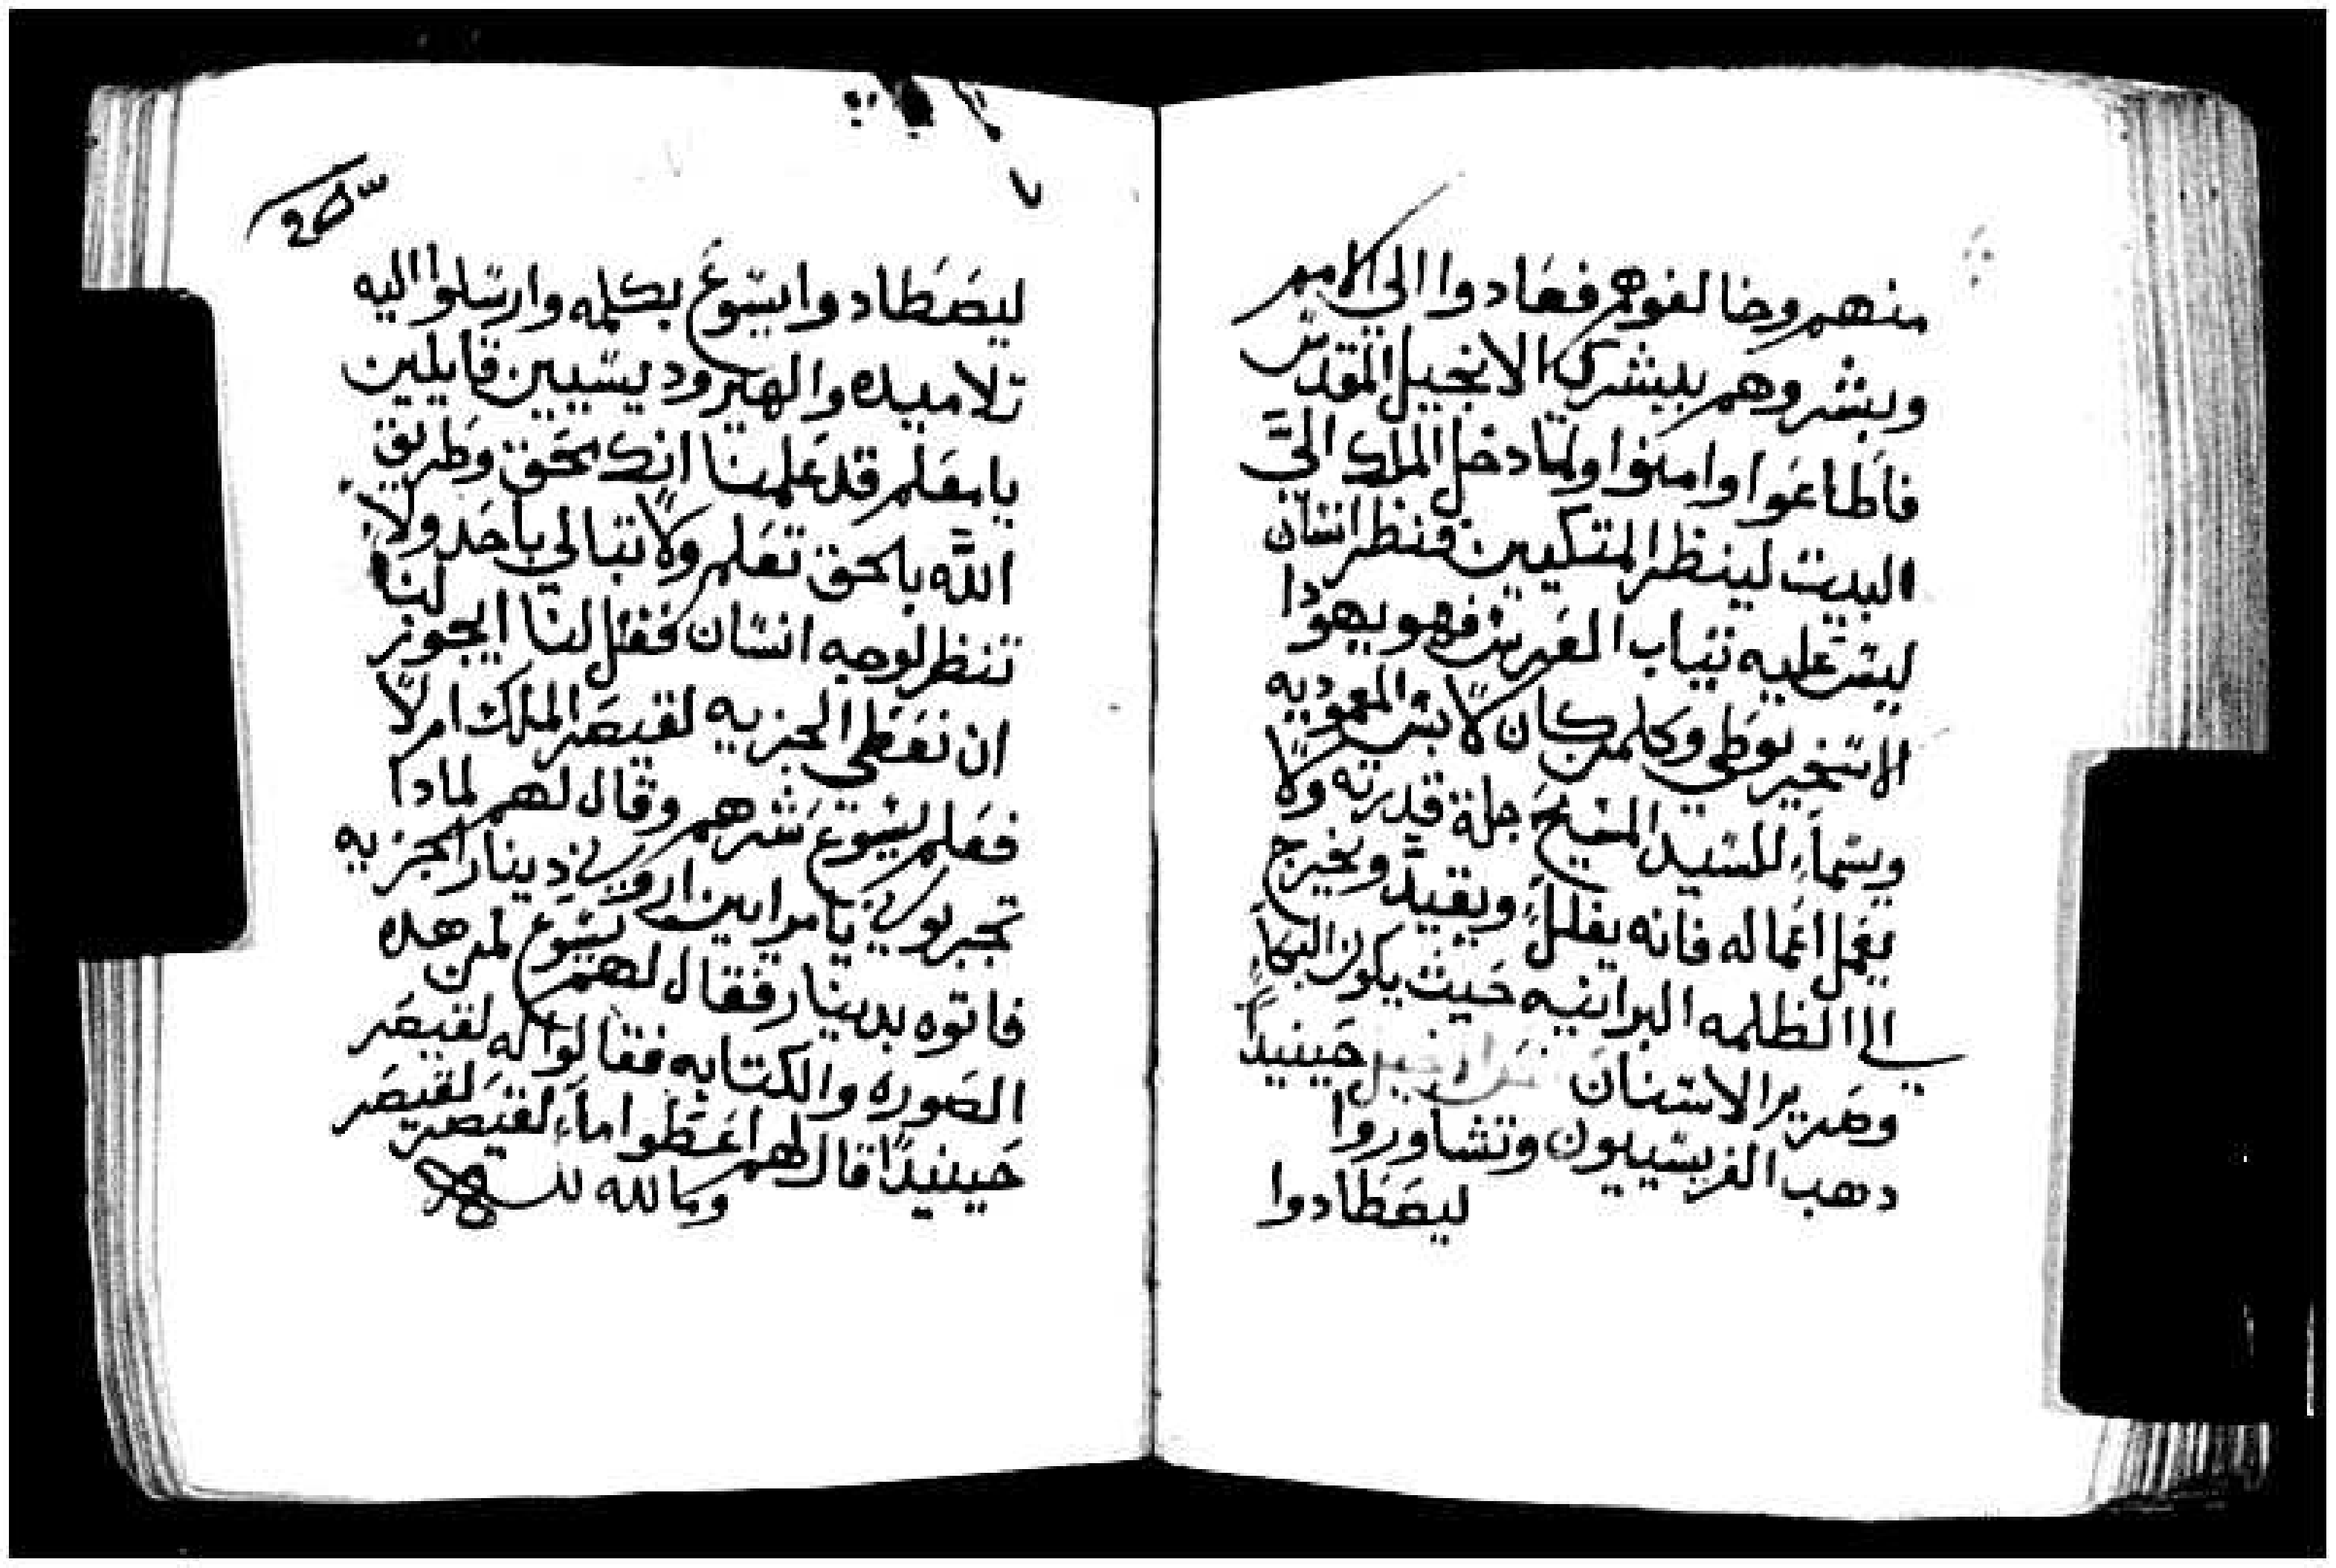 منهم وخالفوهم فعادوا الي الامم
وبشروهم ببشري الانجيل المقدس
فاطاعوا وامنوا ولما دخل الملك الي
البيت لينظر المتكيين فنظر انسان
ليس عليه تياب العرس فهو يهودا
الاسخريوطي وكلمن كان لابس المعموديه
وسماء للسيد المسيح جلة قدرته ولا
يعمل اعماله فانه يغلل ويقيد ويخرج
الي الظلمه البرانيه حيث يكون البكاء
وصرير الاسنان حينيدا
دهب الفريسيون وتشاوروا
ليصطادوا
ليصطادوا ايسوع بكلمه وارسلوا اليه
تلاميده والهيروديسيين قايلين
يا معلم قد علمنا انك محق وطريق
الله بالحق تعلم ولا تبالي باحد ولا
تنظر لوجه انسان فقل لنا ايجوز لنا
ان نعطي الجزيه لقيصر الملك ام لا
فعلم يسوع شرهم وقال لهم لمادا
تجربوني يا مرايين اروني دينار الجزيه
فاتوه بدينار فقال لهم يسوع لمن هده
الصوره والكتابه فقالوا له لقيصر
حينيدا قال لهم اعطوا ماء لقيصر لقيصر
وما لله لله